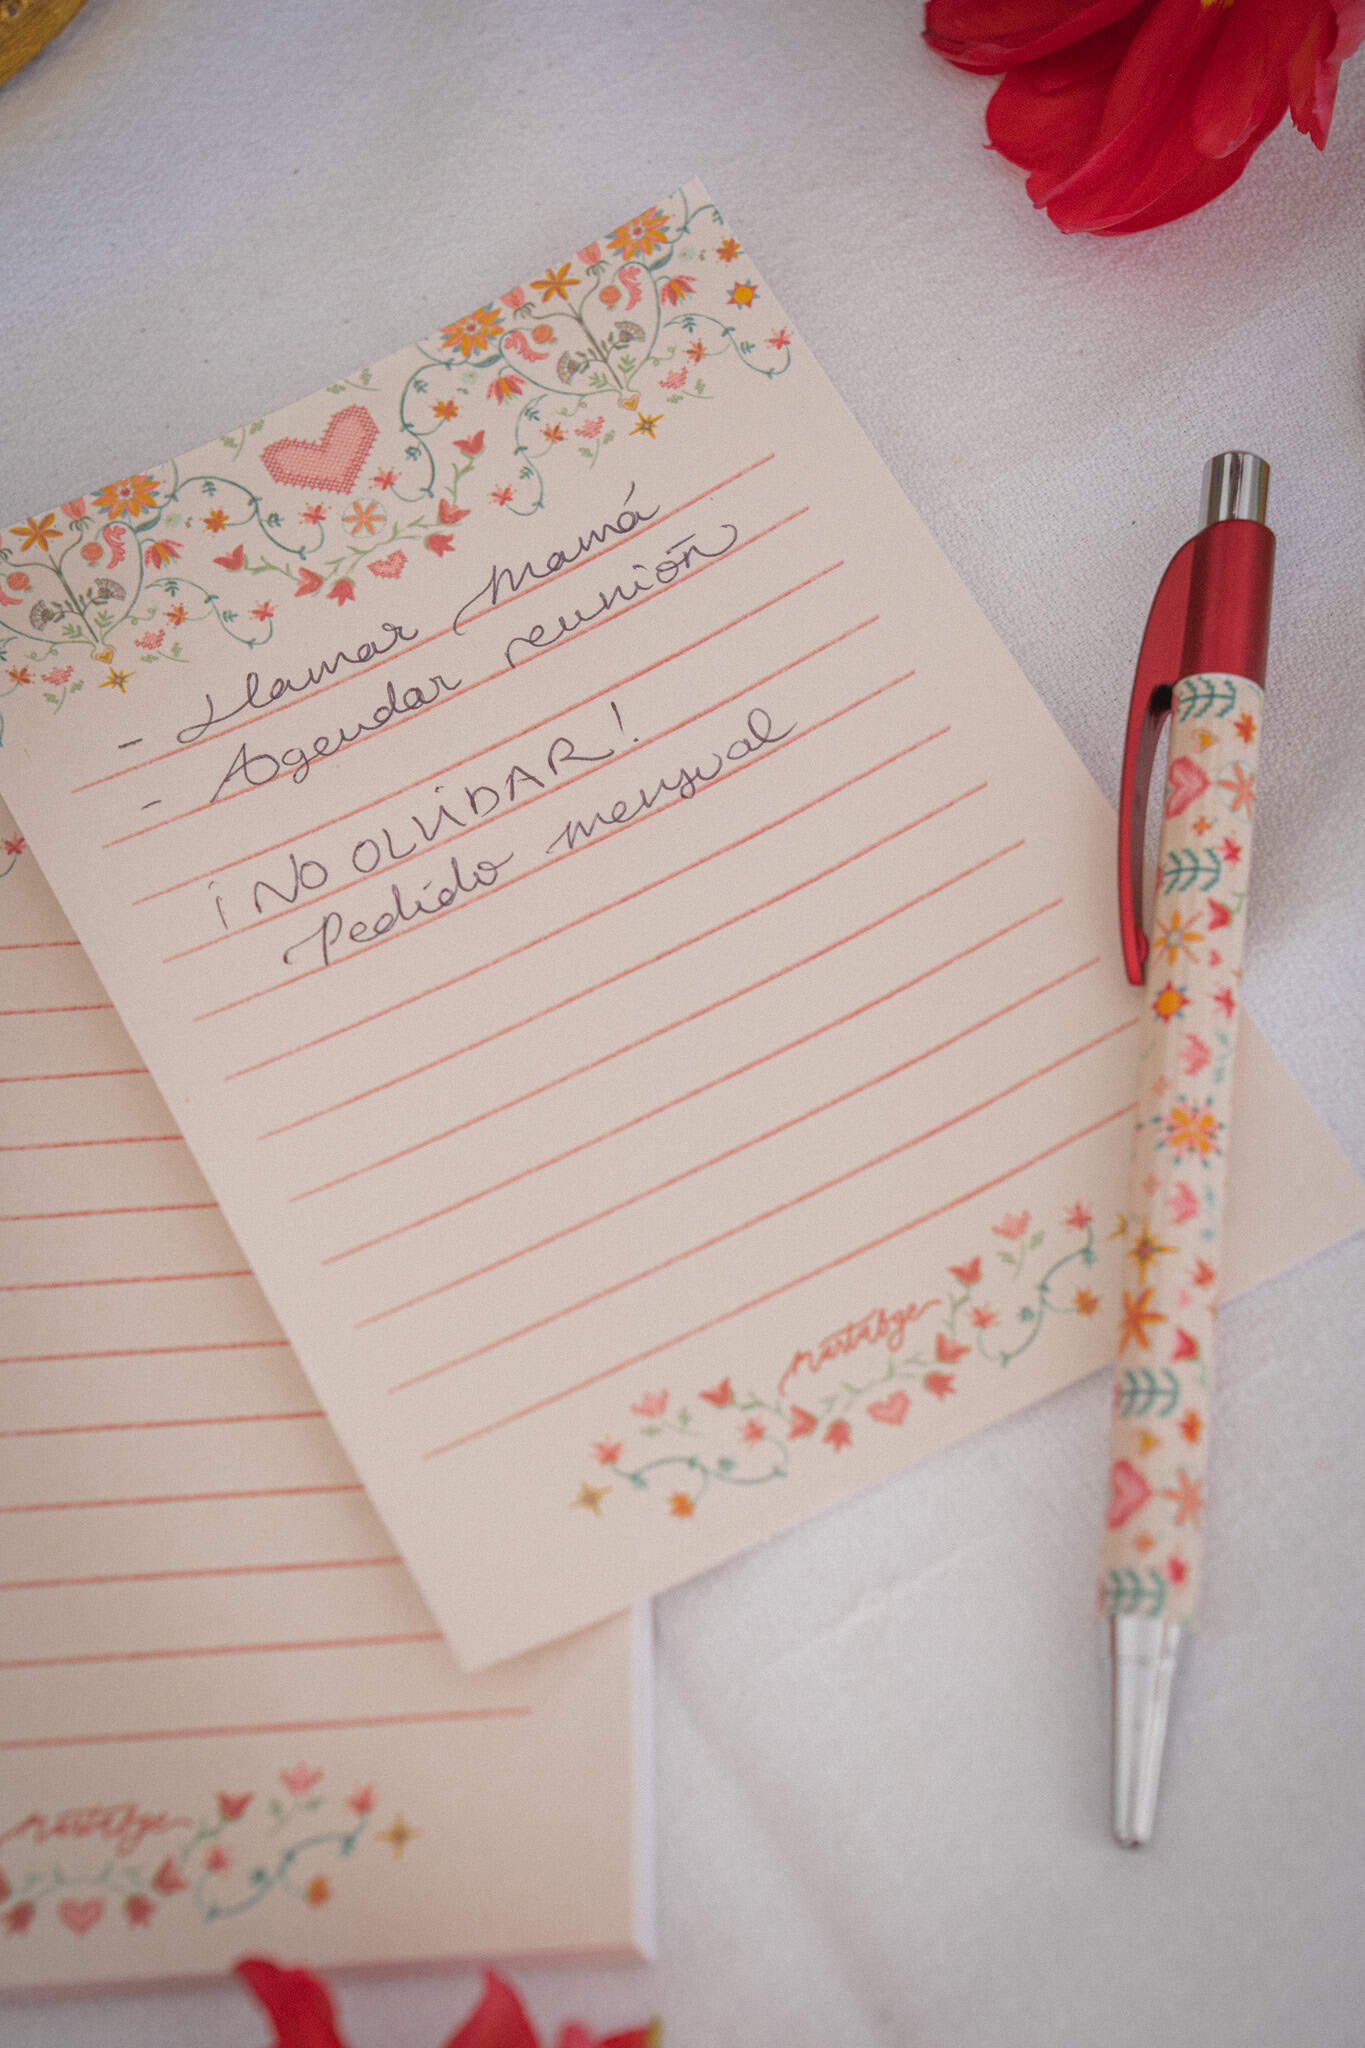 - Llamar mamá
- Agendar reunión
¡NO OLVIDAR!
Pedido mensual